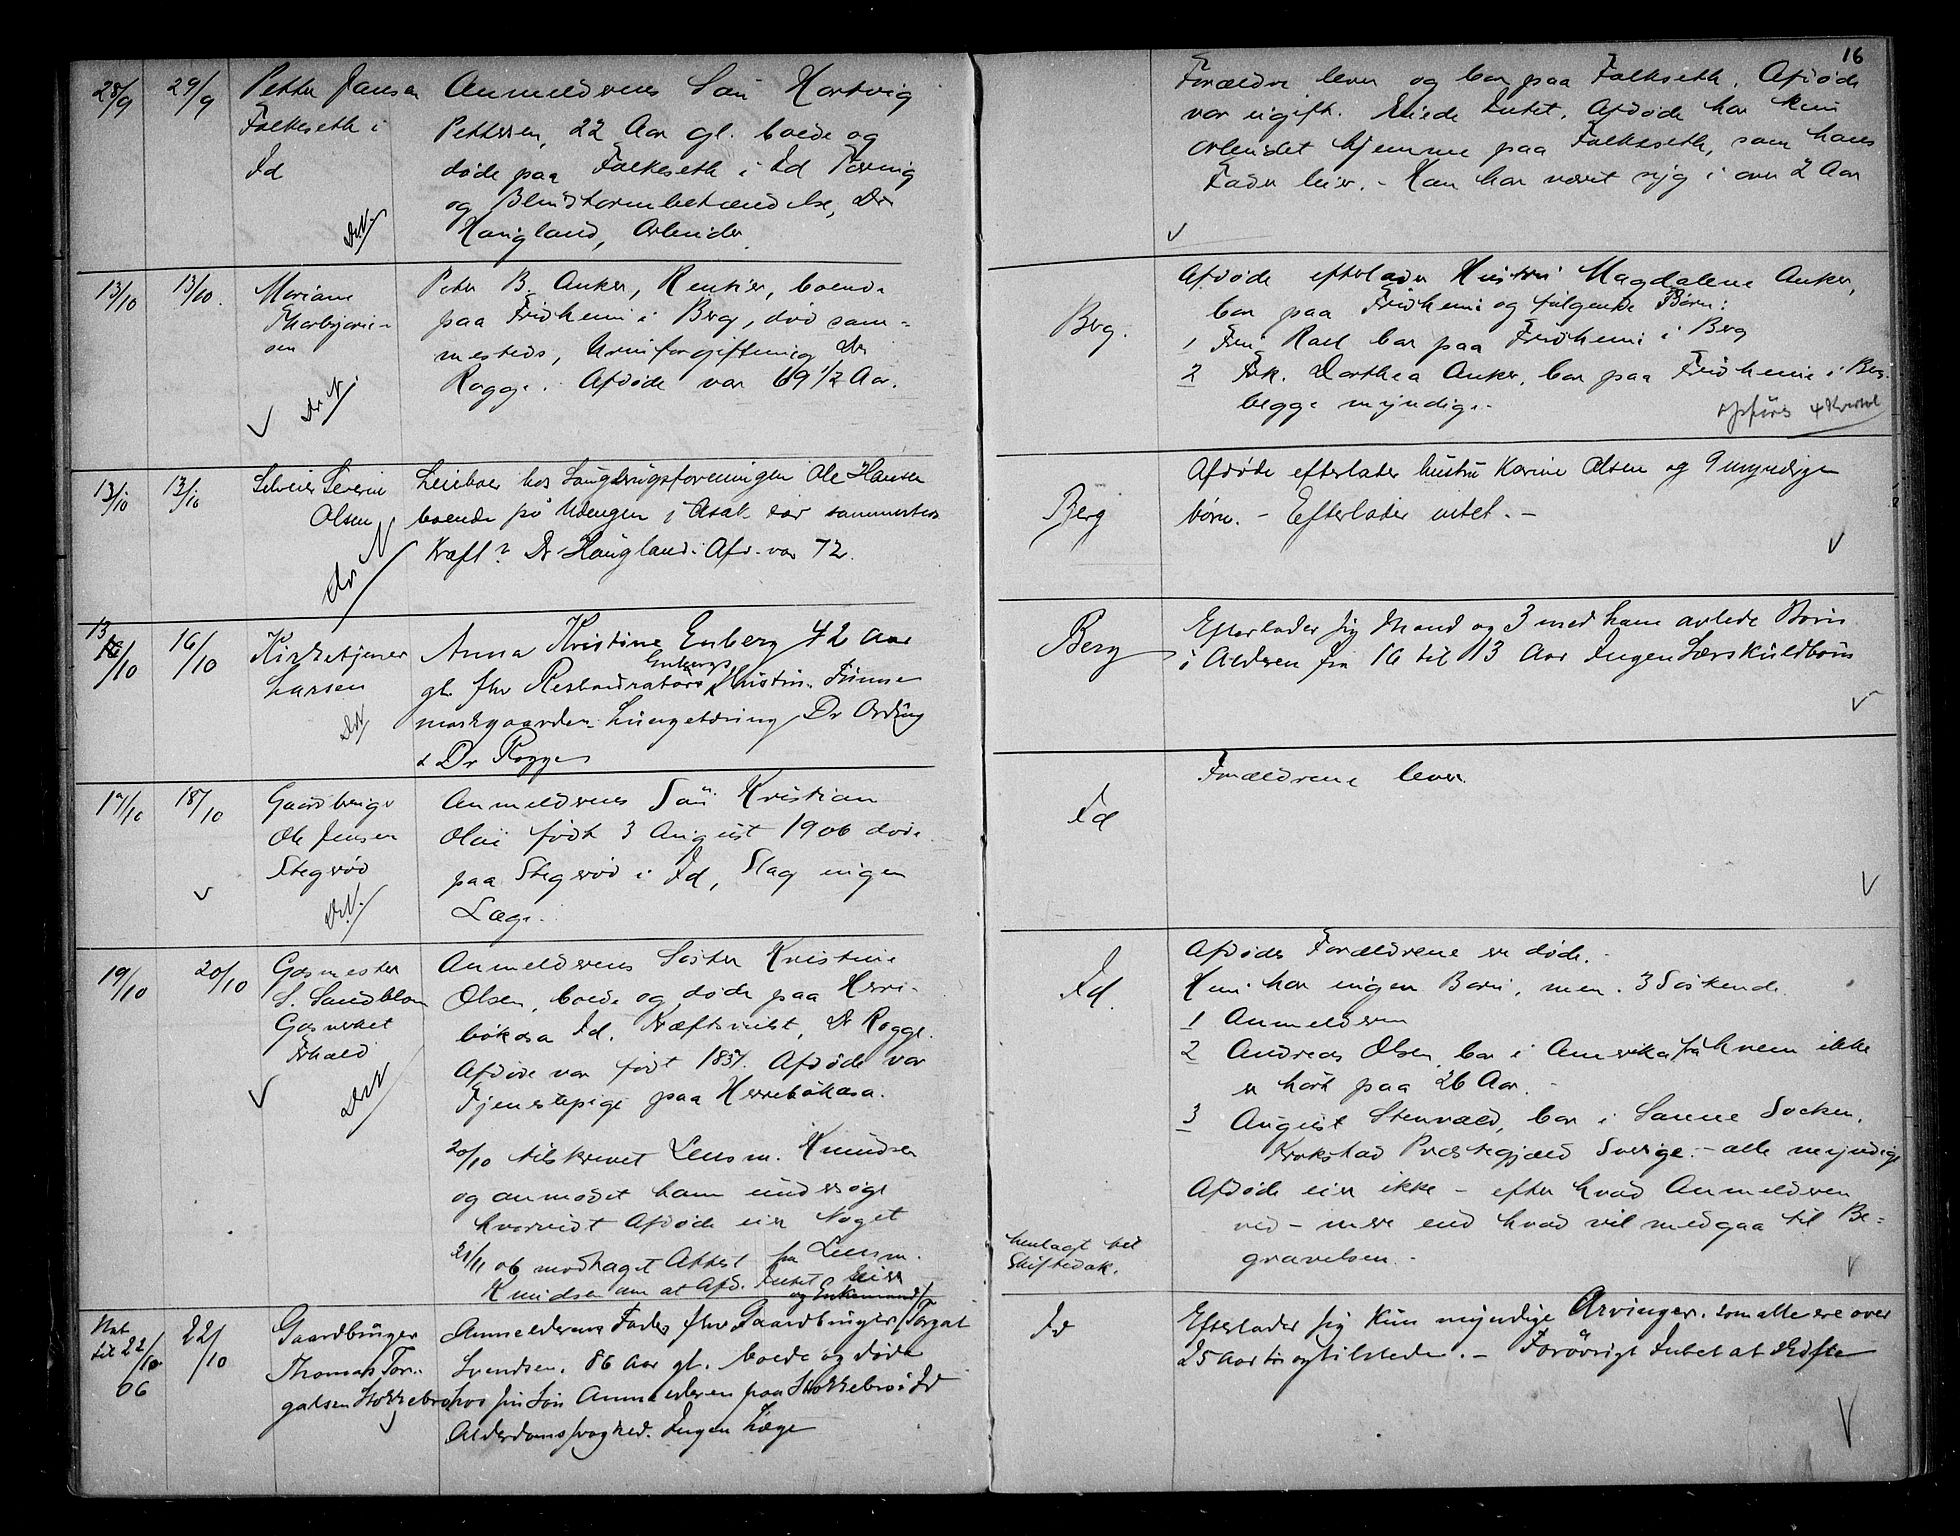 16
28/9 29/9 Petter Jansen
Falkeseth i
Id
Anmelderens Søn Hartvig
Pettersen, 22 Aar gl. boede og
døde paa Falkeseth i Id Tæring
og Blindtarmbetændelse, Dr
Haugland, Arbeider
Forældre lever og bor paa Falkseth. Afdøde
var ugift. Eiede Intet. Afdøde har kun
arbeidet hjemme paa Falkseth, som hans
Fader eier. - Han har været syg i over 2 Aar
13/10 13/10. Mariane
Thorbjørn-
sen
Peter B. Anker, Rentier, boende
paa Fridheim i Berg, død sam-
mesteds, Urinforgiftning Dr
Rogge. Afdøde var 69 1/2 Aar.
Berg.
Afdøde efterlader Hustru Magdalene Anker,
bor paa Fridheim og følgende Børn:
1 Fru Roll bor paa Fridheim i Berg
2 Frk. Dorthea Anker, bor paa Fridheim i Berg.
begge myndige.
opføres 4 Kvartal
13/10 13/10 Severin
Olsen
Leieboer hos Langbrugsforeningen Ole Hansen
boende på Udengen i Asak død sammesteds
Kræft? Dr Haugland. Afd. var 72.
Berg
Afdøde efterlader hustru Karine Olsen og 9 myndige
børn. - Efterlader intet. -
13/10 16/10 Kirketjener
Larsen
Anna Kristine Enberg 42 Aar
gl. fhv Restauratørs Enbergs Hustru. Finne
markgaarden Lungetæring Dr Ording
& Dr Rogge
Berg
Efterlader sig Mand og 3 med ham avlede Børn
i Alderen fra 16 til 13 Aar Ingen Særskuldbørn
17/10 18/10 Gaardbruger
Ole Jensen
Stegerød
Anmelderens Søn Kristian
Olai født 3 August 1906 døde
paa Stegerød i Id, Slag ingen
Læge.
Id
Forældrene lever
19/10 20/10 Gasmester
S. Sandblom
Gasverket
Frhald
Anmelderens Søster Kristine
Olsen, boede og døde paa Herre-
bøkasa Id. Kræftsvulst, Dr Rogge.
Afdøde var født 1837. Afdøde var
Tjenestepige paa Herrebøkasa.
20/10 tilskrevet Lensm. Knudsen
og anmodet ham undersøge
hvorvidt Afdøde eier Noget
21/11 06 modtaget Attest fra Lensm.
Knudsen om at Afd. Intet eier
Id.
henlagt til
Skiftedok.
Afdødes Forældrene er døde.
Hun har ingen Børn, men 3 Søskende
1 Anmelderen
2 Andreas Olsen, bor i Amerika fra hvem ikke
er hørt paa 26 Aar. -
3 August Stenvald, bor i Sanne Socken,
Krokstad Præstegjæld Sverige. - alle myndige
Afdøde eier ikke - efter hvad Anmelderen
ved - mere end hvad vil medgaa til Be-
gravelsen.
Nat
til 22/10
06
22/10
Gaardbruger
Thomas Tor-
galsen Stokkebrø
og Enkemand
Anmelderens Fader fhv Gaardbruger Torgal
Svendsen. 86 Aar gl. boede og døde
hos sin Søn Anmelderen paa Stokkebrø i Id
Alderdomssvaghed. Ingen Læge
Id
Efterlader sig kun myndige Arvinger. som alle ere over
25 Aar og tilstede. - Forøvrigt Intet at skifte